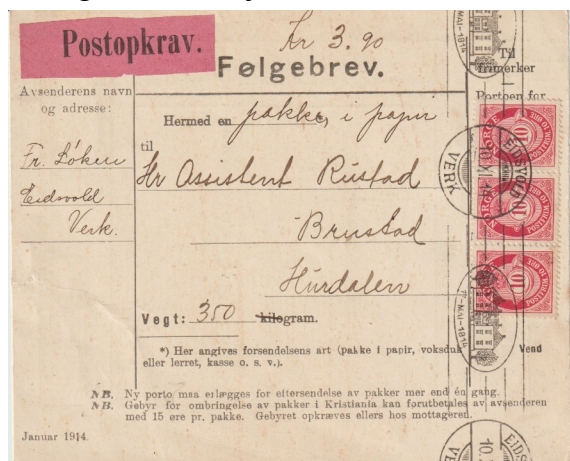 Postopkrav.
Kr 3.90
Følgebrev.
Til
frimerker
Portoen for
Avsenderens navn
og adresse:
Fr. Løken
Eidsvold
Verk.
Hermed en pakke, i papir
til
Hr Assistent Rustad
Brustad
Hurdalen
Vegt: 350 kilogram.
*) Her angives forsendelsens art (pakke i papir, voksduk
eller lerret, kasse o. s. v.).
Vend
NB. Ny porto maa erlægges for eftersendelse av pakker mer end én gang.
NB. Gebyr for ombringelse av pakker i Kristiania kan forutbetales av avsenderen
med 15 øre pr. pakke. Gebyret opkræves ellers hos mottageren.
Januar 1914.
NORGE
10
NORGE
10
NORGE
10
EIDSVOLD
VERK
17-MAI-1814
EIDS
10